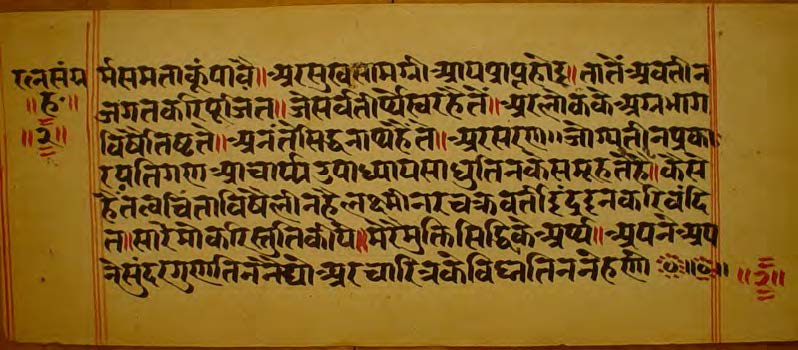 रत्नसंग्र
॥ह॥
॥२॥
र्मसमताकूंपावै॥ अरसुखसामग्री आपप्रापूहोइ॥ तातें अवतीन
जगतकरिपूजित॥ जेसर्वतीर्थेस्वरहैते॥ अरलोकके अग्रभाग
विषैतिष्टते॥ अनंतेसिद्धनाथहैते॥ अरसरण॥ जोग्यतीनप्रका
रयतिगण आचार्य्य उपाध्यायसाधुतिनकेसमूहतेहै॥ कैसे
हैतत्वचिंताविषैलीनहैलक्ष्मीनरचक्रवर्तीइिंदुइनकरिवंदि
त॥ सारेमोकरिस्तुतिकीये॥ मेरेमुक्तिसिद्धिके अर्थ्य॥ अपने अप
नेसुंदरगुणतिननैद्यो अरचारित्रकेविघ्नतिननेहरौ ॥छ॥
॥२॥